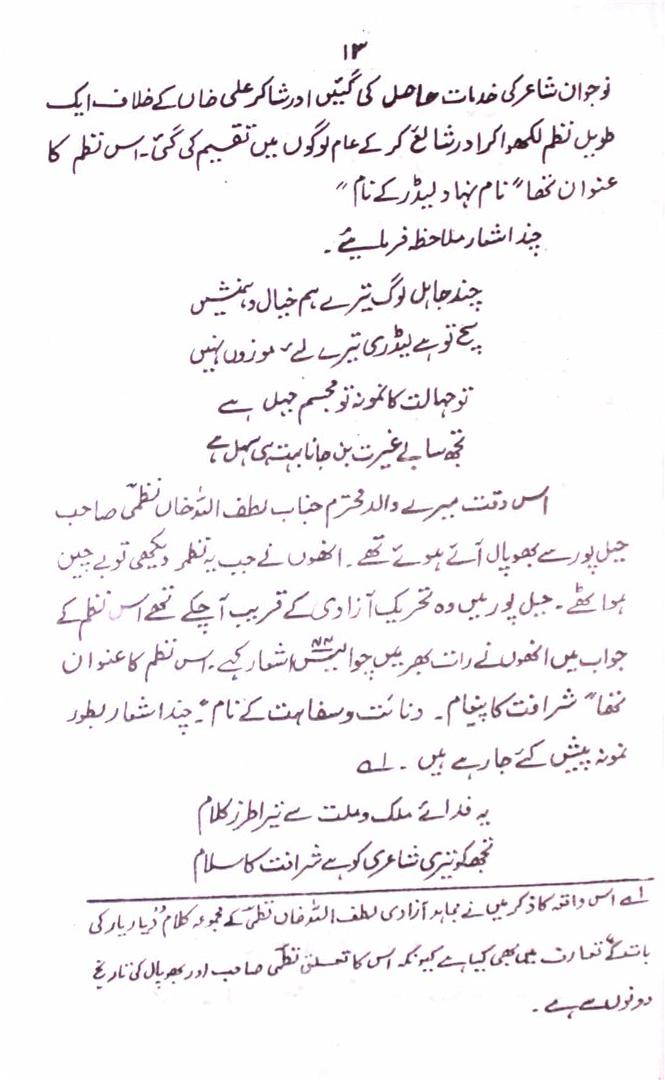 ۱۳
نوجوان شاعر کی خدمات حاصل کی گئیں اور شاکر علی خاں کے خلاف ایک
طویل نظم لکھوا کر اور شائع کر کے عام لوگوں میں تقسیم کی گئی۔ اس نظم کا
عنوان تھا "نام نہاد لیڈر کے نام"
چند اشعار ملاحظہ فرمایئے۔
چند جاہل لوگ تیرے ہم خیال و ہمنشیں
سچ تو ہے لیڈری تیرے لئے موزوں نہیں
تو جہالت کا نمونہ تو مجسم جہل ہے
تجھ سا بے غیرت بن جانا بہت ہی سہل ہے
اس وقت میرے والد محترم جناب لطف اللہ خاں نظمی صاحب
جبل پور سے بھوپال آئے ہوئے تھے۔ انھوں نے جب یہ نظم دیکھی تو بے چین
ہو اٹھے۔ جبل پور میں وہ تحریک آزادی کے قریب آ چکے تھے اس نظم کے
جواب میں انھوں نے رات بھر میں چوالیس ۴۴ اشعار کہے۔ اس نظم کا عنوان
تھا "شرافت کا پیغام۔ دنائت و سفاہت کے نام"۔ چند اشعار بطور
نمونہ پیش کئے جا رہے ہیں۔ ۱ے
یہ فدائے ملک و ملت سے تیرا طرز کلام
تجھ کو تیری شاعری کو ہے شرافت کا سلام
۱ے اس واقعہ کا ذکر میں نے مجاہد آزادی لطف اللہ خاں نظمی کے مجموعہ کلام "دیار یار کی
بات" کے تعارف میں بھی کیا ہے کیونکہ اس کا تعلق نظمی صاحب اور بھوپال کی تاریخ
دونوں سے ہے۔